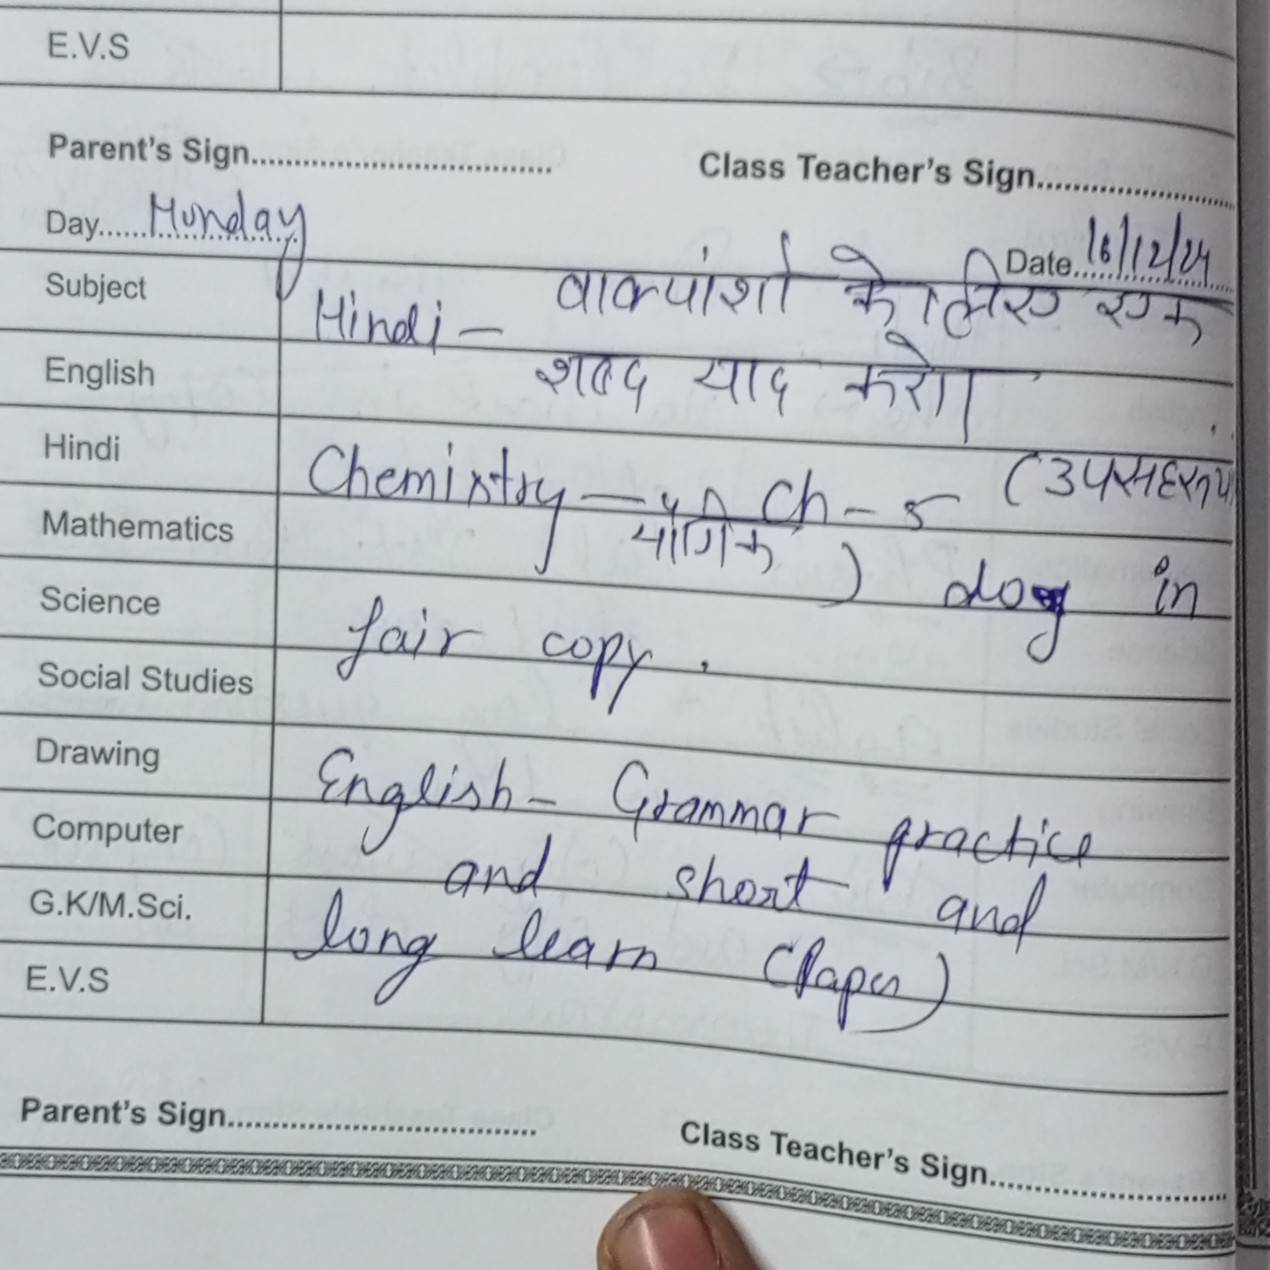 E.V.S
Parent's Sign.............................. Class Teacher's Sign....................
Day......Munday Date..16/12/24
Subject
Hindi - वाक्यांशो के लिए एक
English
शब्द याद करो।
Hindi
Chemistry - Ch - 5 (उपसहसंयो
यौगिक) do in
Mathematics
Science
fair copy.
Social Studies
Drawing
English - Grammar practice
Computer
and short and
G.K/M.Sci.
long learn (Paper)
E.V.S
Parent's Sign.............................. Class Teacher's Sign..............................